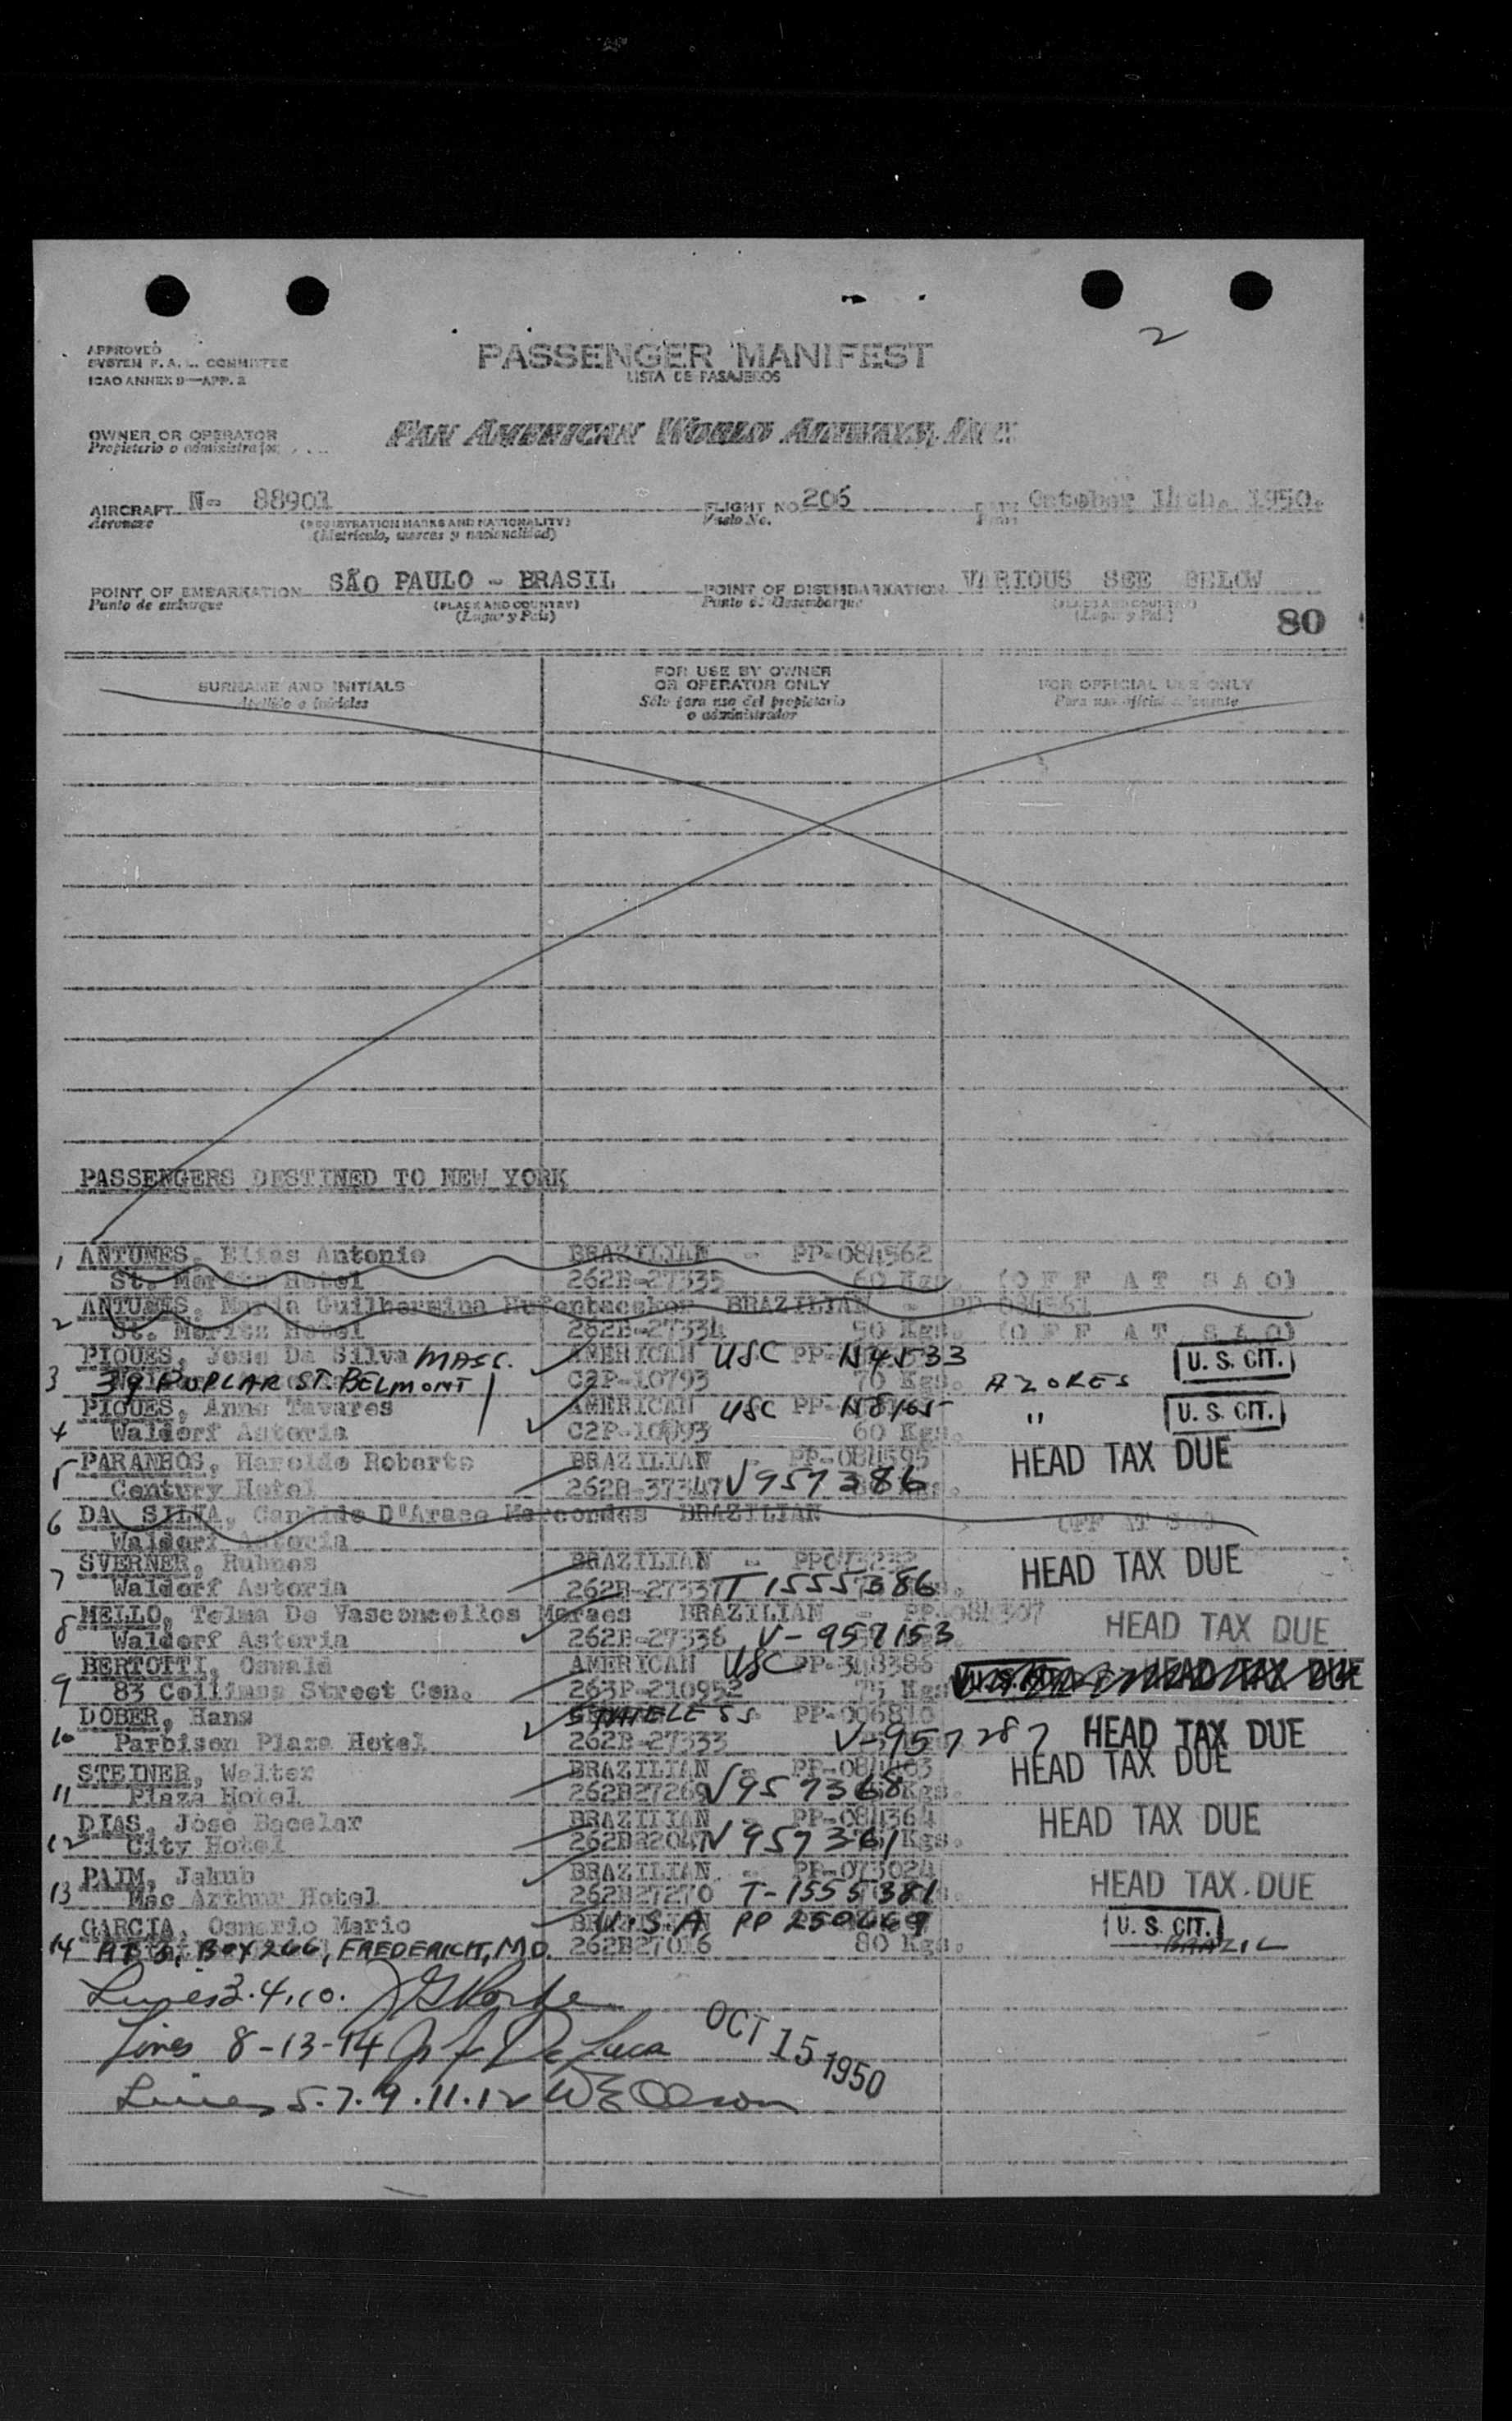 2
APPROVED
SYSTEM F. A. L. COMMITTEE
ICAO ANNEX 9—APP. 2
PASSENGER MANIFEST
LISTA DE PASAJEROS
OWNER OR OPERATOR
Propietario o administrador
PAN AMERICAN WORLD AIRWAYS, INC.
AIRCRAFT N- 88901
Aeronave
(REGISTRATION MARKS AND NATIONALITY)
(Matrículo, marcas y nacionalidad)
FLIGHT NO. 206
Vuelo No.
October 14th. 1950.
POINT OF EMBARKATION SÃO PAULO - BRASIL
Punto de embarque
(PLACE AND COUNTRY)
(Lugar y País)
POINT OF DISEMBARKATION VARIOUS SEE BELOW
Punto de Desembarque
(PLACE AND COUNTRY)
(Lugar y País)
80
SURNAME AND INITIALS
Apellido e iniciales
FOR USE BY OWNER
OR OPERATOR ONLY
Sólo para uso del propietario
o administrador
FOR OFFICIAL USE ONLY
Para uso oficial solamente
PASSENGERS DESTINED TO NEW YORK
1 ANTUNES, Elias Antonio BRAZILIAN - PP-084562
St. Moritz Hotel 262B-27335 60 Kgs. (O F F A T S A O)
2 ANTUNES, Maria Guilhermina BRAZILIAN - PP
St. Moritz Hotel 262B-27334 50 Kgs. (O F F A T S A O)
3 PIQUES, Jose Da Silva MASC. AMERICAN USC PP- 154533 U. S. CIT.
39 POPLAR ST. BELMONT C2P-10793 70 Kgs. AZORES
4 PIQUES, Anna Tavares AMERICAN USC PP- 158165 " U. S. CIT.
Waldorf Astoria 60 Kgs.
5 PARANHOS, Haroldo Roberts BRAZILIAN - PP-084595 HEAD TAX DUE
Century Hotel 262B-37347 V957386
6 DA SILVA, Candido D'Araso Marcondes BRAZILIAN - OFF AT SAO
Waldorf Astoria
7 SVERNER, Rubnes BRAZILIAN - HEAD TAX DUE
Waldorf Astoria 262B-27337 T1555386
8 MELLO, Telma De Vasconcellos Moraes BRAZILIAN - PP-084307
Waldorf Astoria 262B-27336 V-957153 HEAD TAX DUE
9 BERTOTTI, Oswald AMERICAN USC PP-348386
83 Collimns Street Con. 263P-210952 75 Kgs HEAD TAX DUE
10 DOBER, Hans STATELESS PP-006810
Parbison Plaza Hotel 262B-27333 V-957287 HEAD TAX DUE
11 STEINER, Walter BRAZILIAN - PP-084463 HEAD TAX DUE
Plaza Hotel 262B27269 V957368 Kgs.
12 DIAS, Jose Bacelar BRAZILIAN PP-084364 HEAD TAX DUE
City Hotel V957361 Kgs.
13 PAIM, Jakub BRAZILIAN - PP-073024
Mac Arthur Hotel 262B27270 T-1555381 HEAD TAX DUE
14 GARCIA, Osmario Mario U.S.A PP 250669 U. S. CIT.
RT 3, BOX 266, FREDERICK, MD. 262B27016 80 Kgs. BRAZIL
Lines 3.4.10.
Lines 8-13-14 De Luca
OCT 15 1950
Lines 5.7.9.11.12 W E Olson